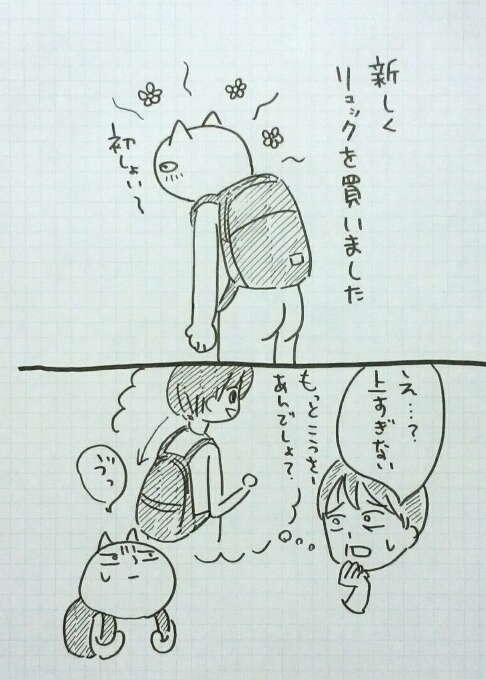 新しく
リュックを買いました
初しょい〜
え…?
上すぎない
もっとこうさ…
あんでしょ?
ゔっ